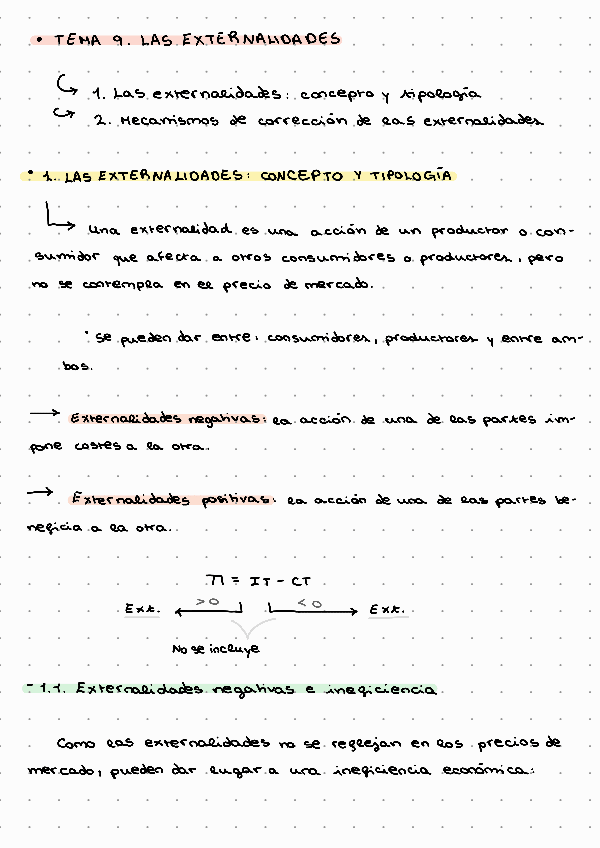 • TEMA 9. LAS EXTERNALIDADES
1. Las externalidades: concepto y tipología
2. Mecanismos de corrección de las externalidades
• 1. LAS EXTERNALIDADES: CONCEPTO Y TIPOLOGÍA
Una externalidad es una acción de un productor o con-
sumidor que afecta a otros consumidores o productores, pero
no se contempla en el precio de mercado.
• Se pueden dar entre: consumidores, productores y entre am-
bos.
→ Externalidades negativas: la acción de una de las partes im-
pone costes a la otra.
→ Externalidades positivas: la acción de una de las partes be-
neficia a la otra.
π = IT - CT
Ext. >0 <0 Ext.
No se incluye
- 1.1. Externalidades negativas e ineficiencia
Como las externalidades no se reflejan en los precios de
mercado, pueden dar lugar a una ineficiencia económica: